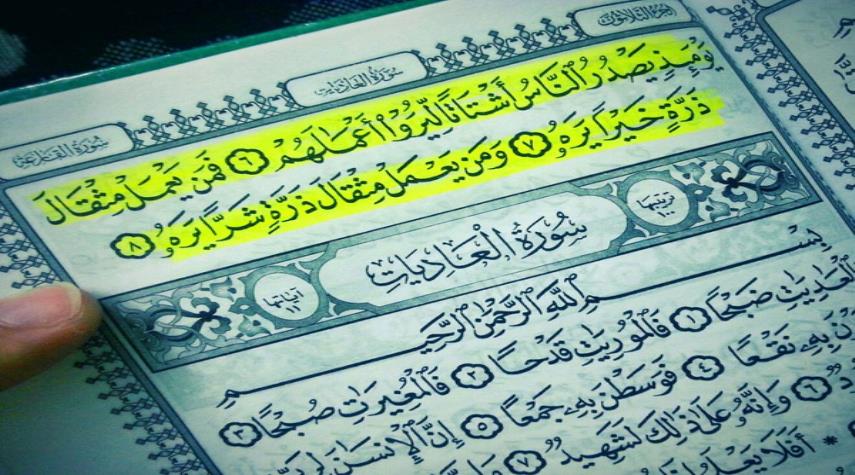 الجزء الثلاثون
سورة العاديات
سورة القارعة
يَوْمَئِذٍ يَصْدُرُ ٱلنَّاسُ أَشْتَاتًا لِّيُرَوْا۟ أَعْمَٰلَهُمْ ٦ فَمَن يَعْمَلْ مِثْقَالَ
ذَرَّةٍ خَيْرًا يَرَهُۥ ٧ وَمَن يَعْمَلْ مِثْقَالَ ذَرَّةٍ شَرًّا يَرَهُۥ ٨
ترتيبها ١٠٠
سُورَةُ العَادِيَات
آياتها ١١
بِسْمِ ٱللَّهِ ٱلرَّحْمَٰنِ ٱلرَّحِيمِ
ٱلْعَٰدِيَٰتِ ضَبْحًا ١ فَٱلْمُورِيَٰتِ قَدْحًا ٢ فَٱلْمُغِيرَٰتِ صُبْحًا ٣
بِهِۦ نَقْعًا ٤ فَوَسَطْنَ بِهِۦ جَمْعًا ٥ إِنَّ ٱلْإِنسَٰنَ لِرَبِّهِ
٦ وَإِنَّهُۥ عَلَىٰ ذَٰلِكَ لَشَهِيدٌ ٧
* أَفَلَا يَعْلَمُ